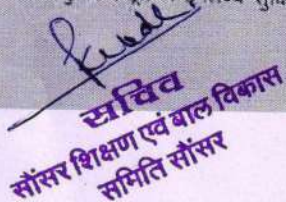 सचिव
सौंसर शिक्षण एवं बाल विकास
समिति सौंसर